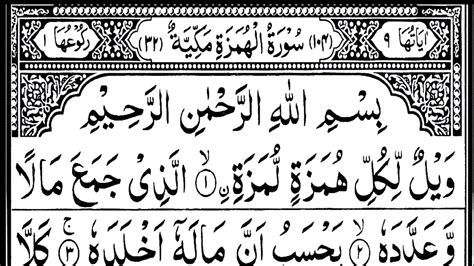 اٰيَاتُهَا ٩ (١٠٤) سُوْرَةُ الْهُمَزَةِ مَكِّيَّةٌ (٣٢) رُكُوْعُهَا ١
بِسْمِ اللّٰهِ الرَّحْمٰنِ الرَّحِيْمِ
وَيْلٌ لِّكُلِّ هُمَزَةٍ لُّمَزَةٍ ۙ﴿١﴾ ۨالَّذِىْ جَمَعَ مَالًا
وَّعَدَّدَهٗ ۙ﴿٢﴾ يَحْسَبُ اَنَّ مَالَهٗۤ اَخْلَدَهٗ ۚ﴿٣﴾ كَلَّا